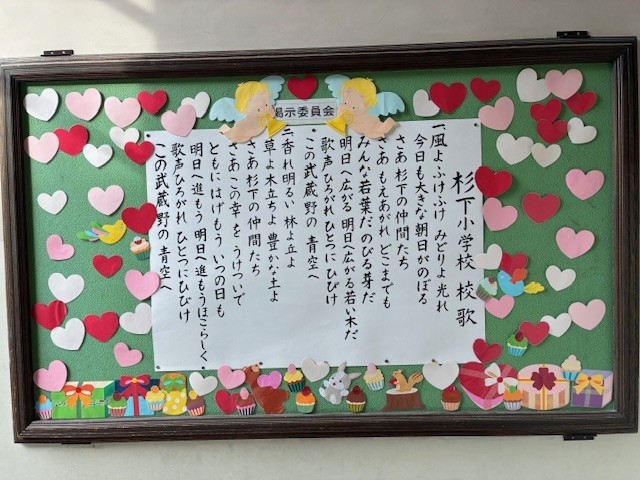 掲示委員会
杉下小学校 校歌
一、風よ ふけふけ みどりよ 光れ
今日も大きな朝日がのぼる
さあ 杉下の仲間たち
さあ もえあがれ どこまでも
みんな若葉だ のびる芽だ
明日へ広がる 明日へ広がる 若い木だ
歌声ひろがれ ひとつにひびけ
この武蔵野の 青空へ
二、香れ 明るい 林よ 丘よ
草よ 木立ちよ 豊かな土よ
さあ 杉下の仲間たち
さあ この幸を うけついで
ともに はげもう いつの日も
明日へ進もう 明日へ進もう ほこらしく
歌声ひろがれ ひとつにひびけ
この武蔵野の 青空へ